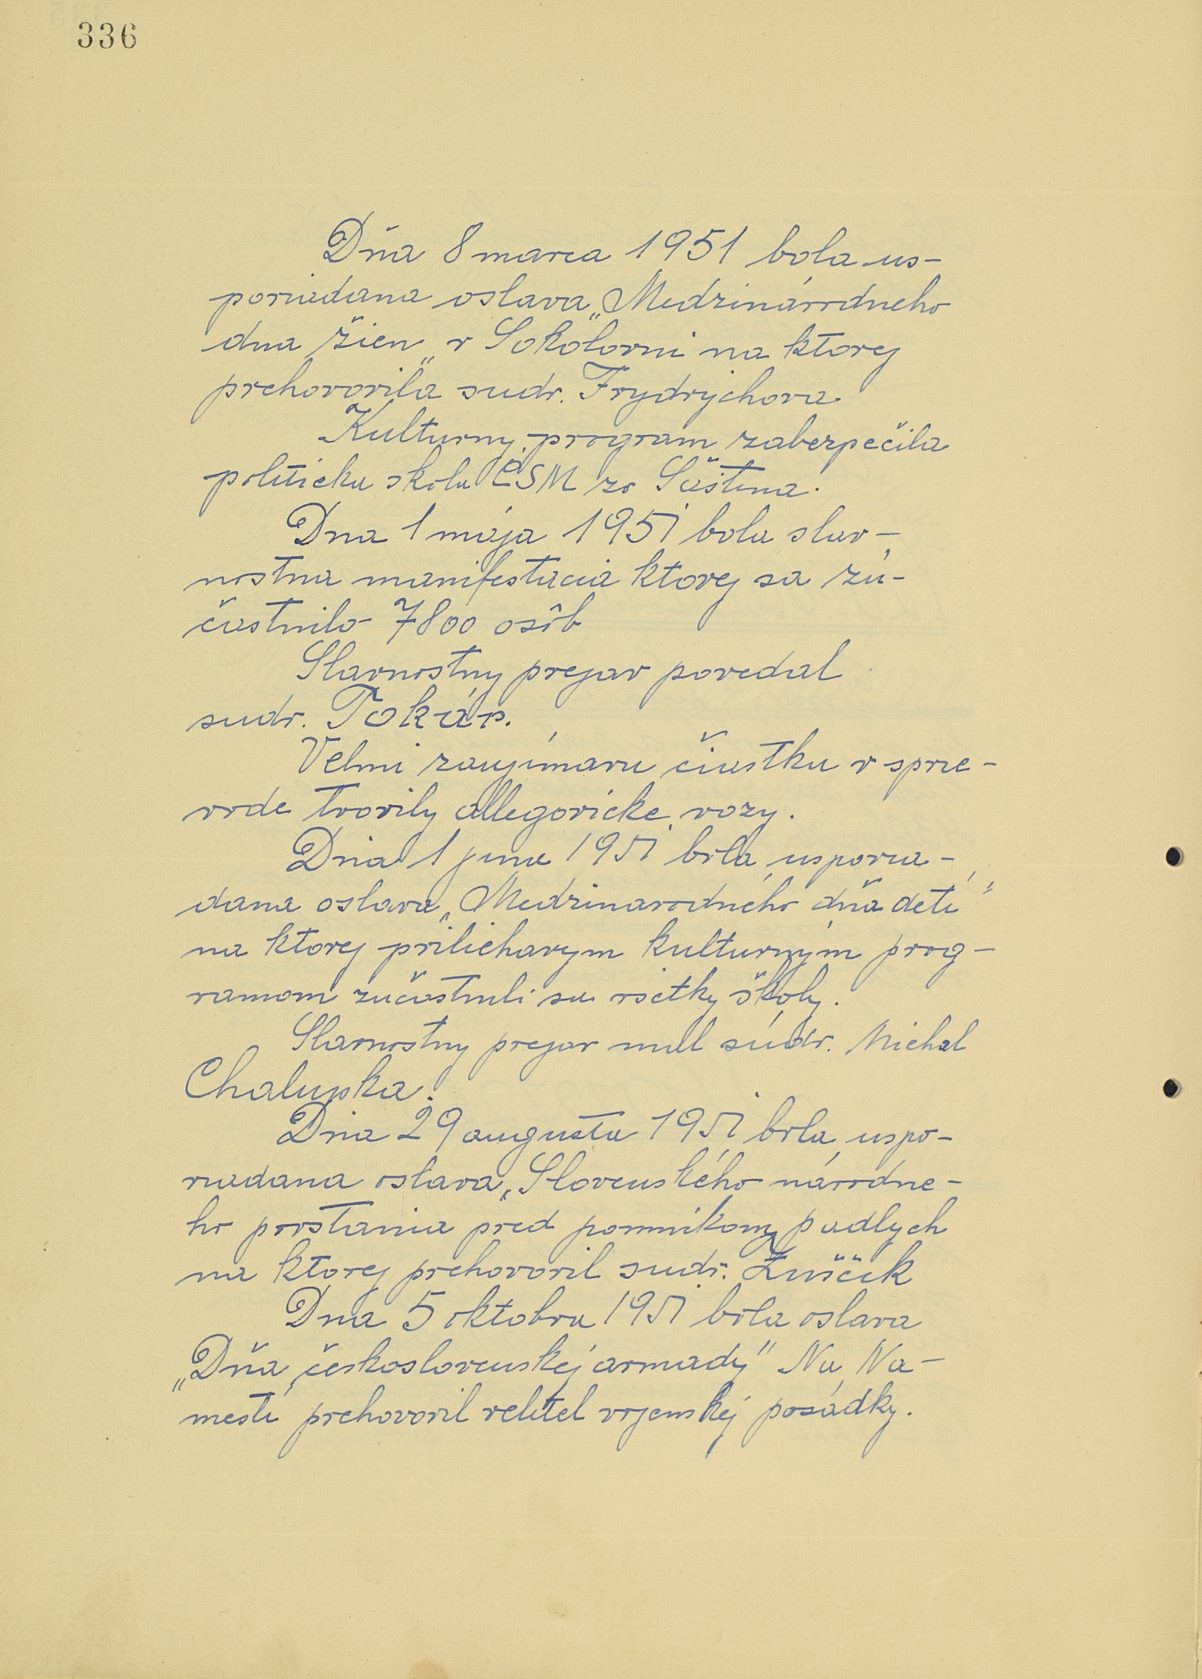 336
Dňa 8 marca 1951 bola us-
poriadana oslava „Medzinárodneho
dna žien" v Sokolovni na ktorej
prehovorila sudr. Frydrychova.
Kulturny program zabezpečila
politicka skola ČSM zo Šaština.
Dna 1 mája 1951 bola slav-
nostna manifestacia ktorej sa zú-
častnilo 7800 osôb
Slavnostny prejav povedal
sudr. Tokár.
Velmi zaujímavu čiastku v sprie-
vode tvorily allegoricke vozy.
Dnia 1 juna 1951 bola usporia-
dana oslava „Medzinarodného dňa deti"
na ktorej priliehavym kulturným prog-
ramom zučastnili sa všetky školy.
Slavnostny prejav mal súdr. Michal
Chalupka.
Dnia 29 augusta 1951 bola uspo-
riadana oslava „Slovenského národne-
ho povstania pred pomníkom padlych
na ktorej prehovoril sudr.
Dna 5 oktobra 1951 bola oslava
„Dňa československéj armady" Na Na-
mesti prehovoril velitel vojenskéj posádky.